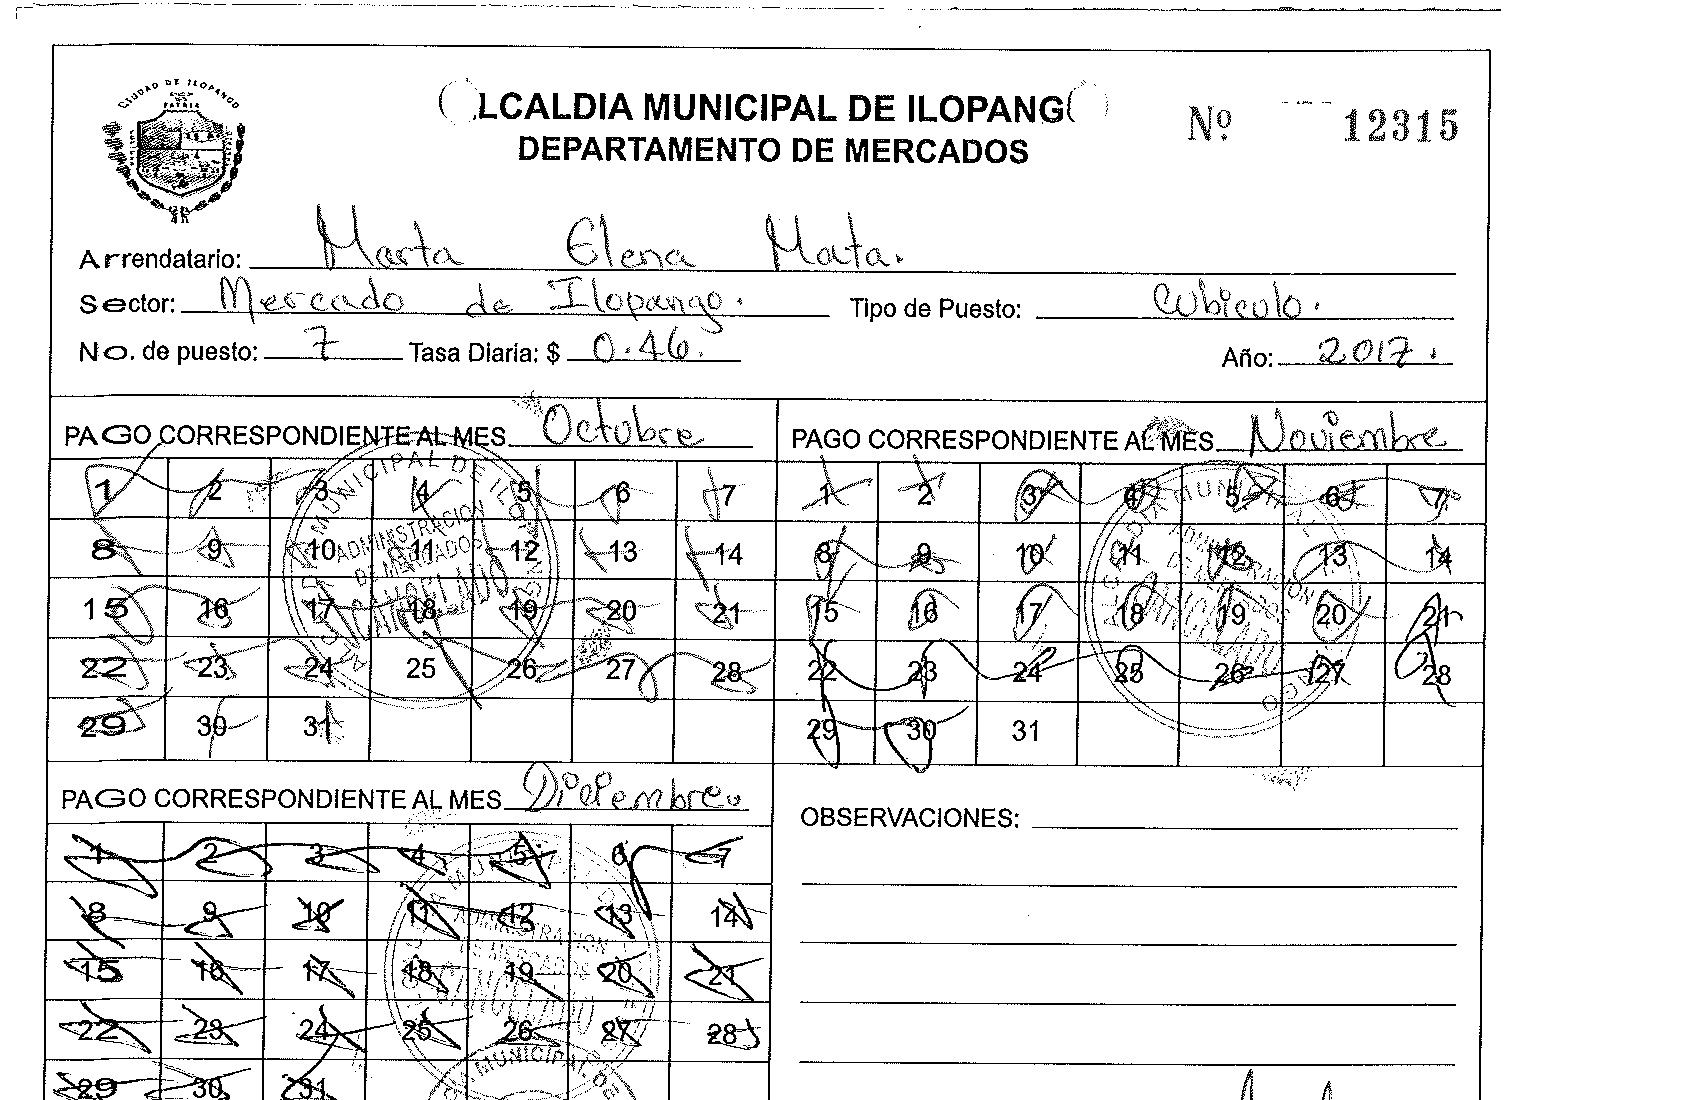 CIUDAD DE ILOPANGO
PATRIA
LCALDIA MUNICIPAL DE ILOPANG
DEPARTAMENTO DE MERCADOS
Nº 12315
Arrendatario: Marta Elena Mata.
Sector: Mercado de Ilopango. Tipo de Puesto: Cubiculo.
No. de puesto: 7 Tasa Diaria: $ 0.46. Año: 2017.
PAGO CORRESPONDIENTE AL MES Octubre
1 2 3 4 5 6 7
8 9 10 11 12 13 14
15 16 17 18 19 20 21
22 23 24 25 26 27 28
29 30 31
MUNICIPAL DE ILOPANGO
ADMINISTRACION
DE MERCADOS
CANCELADO
PAGO CORRESPONDIENTE AL MES Noviembre
1 2 3 4 5 6 7
8 9 10 11 12 13 14
15 16 17 18 19 20 21
22 23 24 25 26 27 28
29 30 31
PAGO CORRESPONDIENTE AL MES Diciembre
1 2 3 4 5 6 7
8 9 10 11 12 13 14
15 16 17 18 19 20 21
22 23 24 25 26 27 28
29 30 31
ADMINISTRACION
DE MERCADOS
CANCELADO
MUNICIPAL DE
OBSERVACIONES: